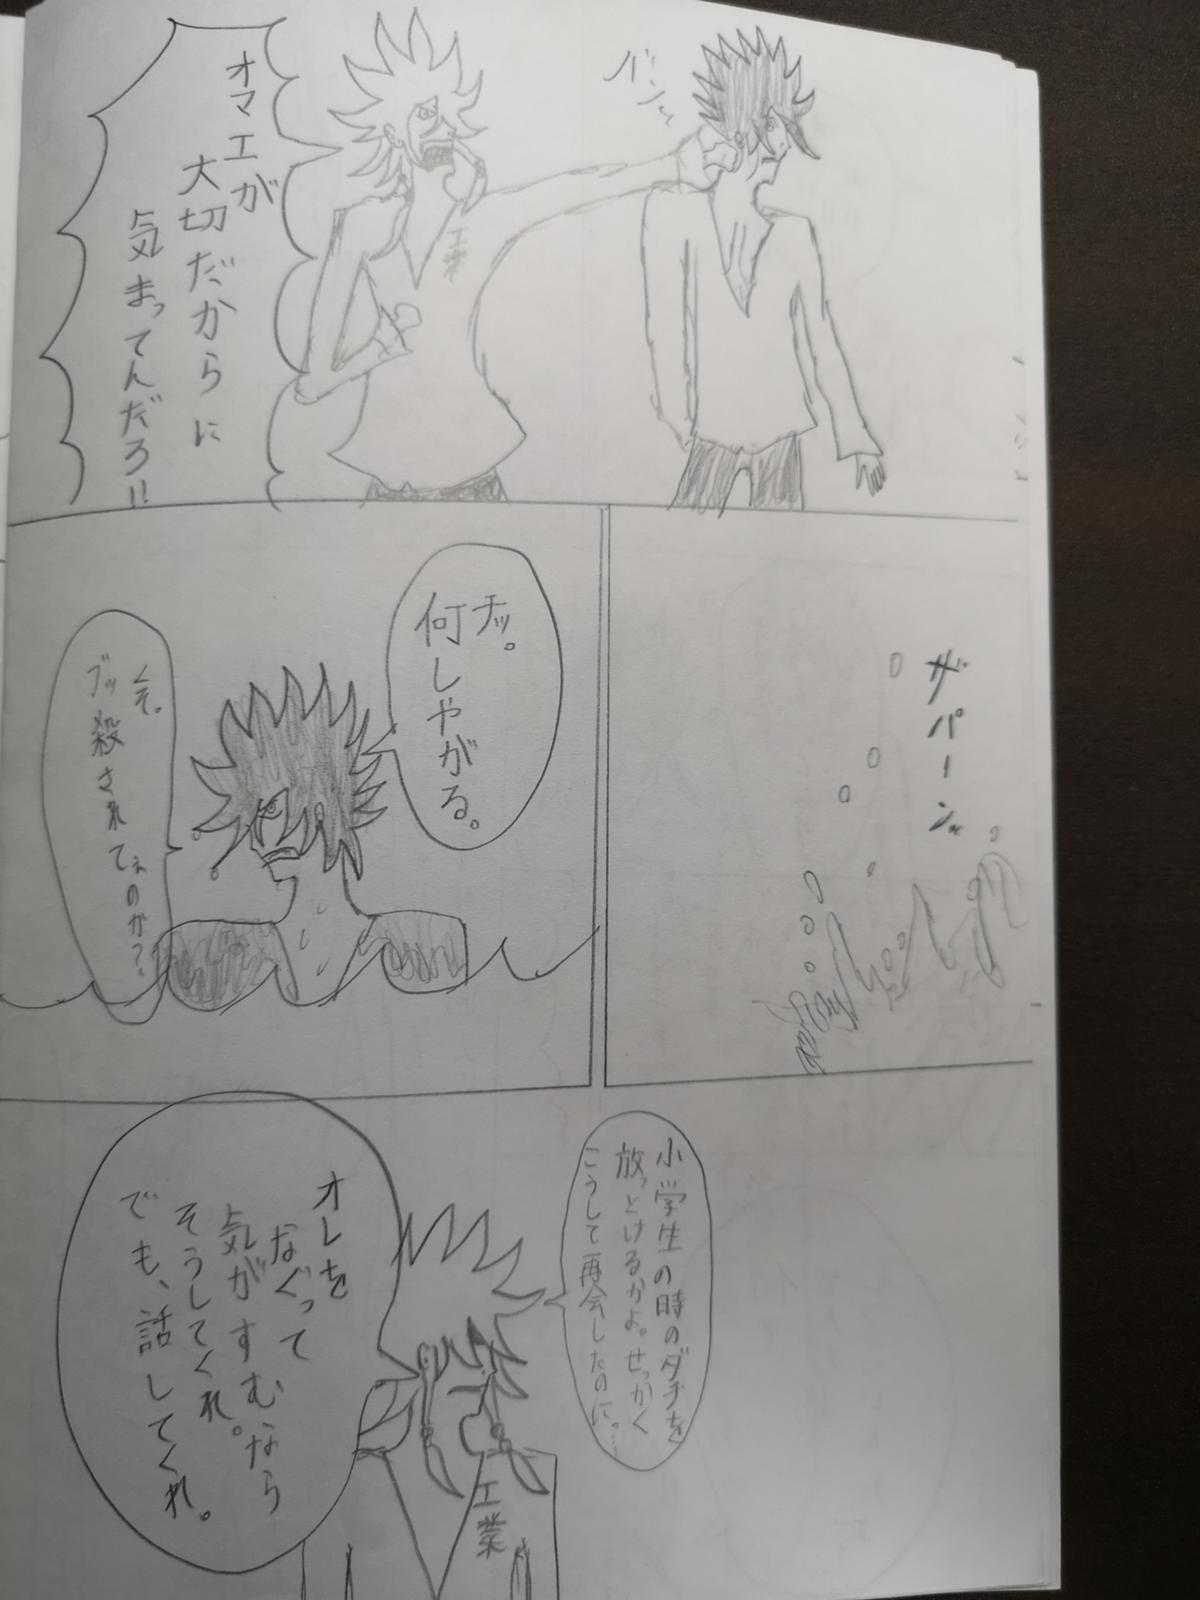 バシッ
オマエが
大切だからに
気まってんだろ!!
工業
ザパーン
チッ。
何しやがる。
くそ。
ブッ殺されてぇのか?
小学生の時のダチを
放っとけるかよ。せっかく
こうして再会したのに。
オレを
なぐって
気がすむなら
そうしてくれ。
でも、話してくれ。
工業